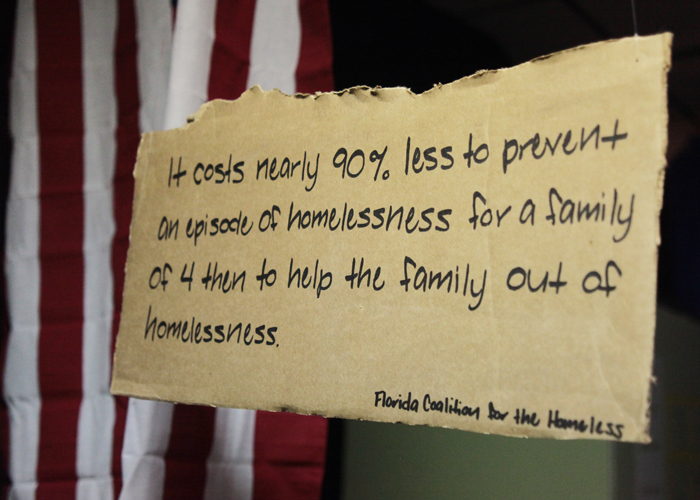 It costs nearly 90% less to prevent
an episode of homelessness for a family
of 4 then to help the family out of
homelessness.
Florida Coalition for the Homeless